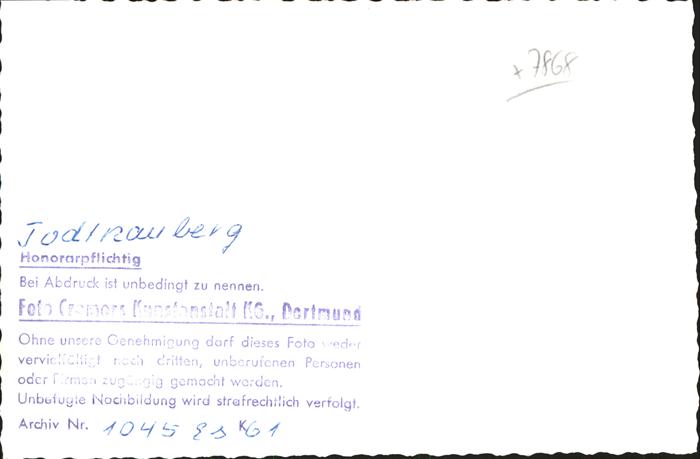 +7868
Todtnauberg
Honorarpflichtig
Bei Abdruck ist unbedingt zu nennen.
Foto Cramers Kunstanstalt KG., Dortmund
Ohne unsere Genehmigung darf dieses Foto weder
vervielfältigt noch dritten, unberufenen Personen
oder Firmen zugängig gemacht werden.
Unbefugte Nachbildung wird strafrechtlich verfolgt.
Archiv Nr. 1045 Es K61